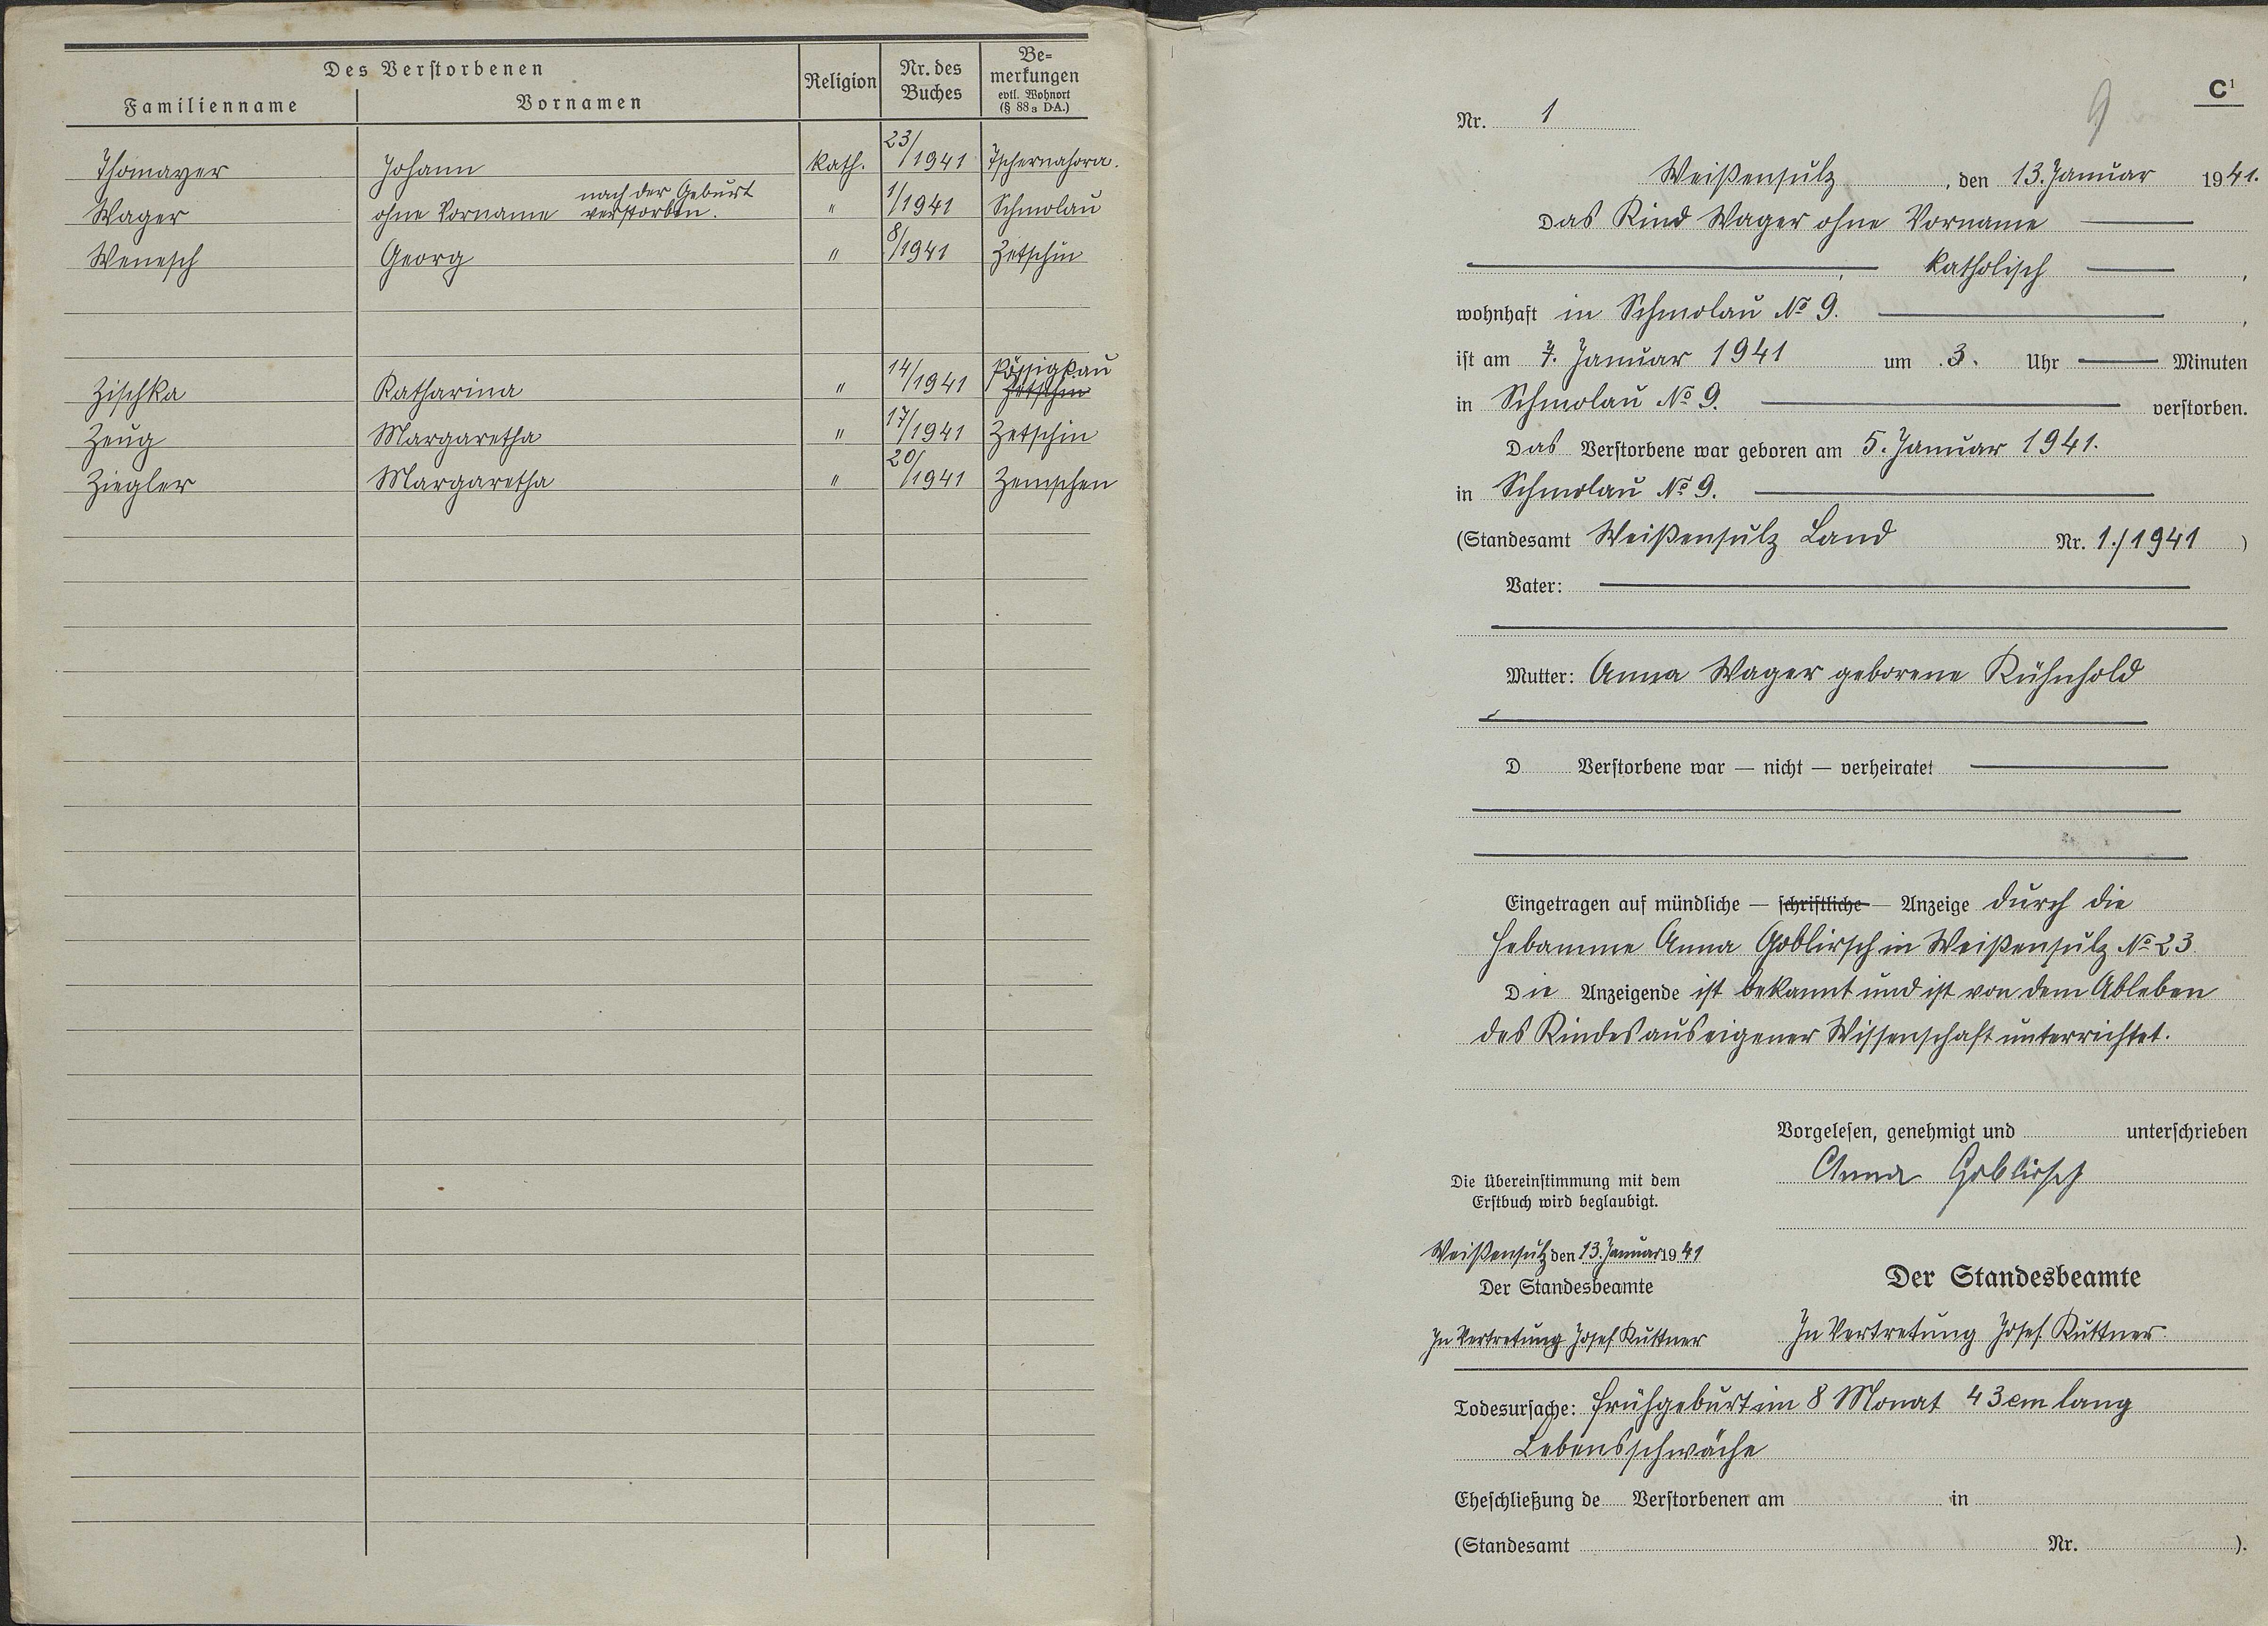 Des Verstorbenen
Familienname Vornamen Religion Nr. des Buches Be=merkungen evtl. Wohnort (§ 88₃ DA.)
Thomayer Johann kath. 23/1941 Tschernahora.
Wager ohne Vorname nach der Geburt verstorben. " 1/1941 Schmolau
Wenesch Georg " 8/1941 Zetschin
Zischka Katharina " 14/1941 Pössigkau Zetschin
Zeug Margaretha " 17/1941 Zetschin
Ziegler Margaretha " 20/1941 Zemschen
9
C¹
Nr. 1
Weißensulz, den 13. Januar 1941.
Das Kind Wager ohne Vorname
katholisch,
wohnhaft in Schmolau № 9.,
ist am 7. Januar 1941 um 3. Uhr — Minuten
in Schmolau № 9. verstorben.
Das Verstorbene war geboren am 5. Januar 1941.
in Schmolau № 9.
(Standesamt Weißensulz Land Nr. 1./1941)
Vater:
Mutter: Anna Wager geborene Kühnhold
D Verstorbene war — nicht — verheiratet
Eingetragen auf mündliche — schriftliche — Anzeige durch die
Hebamme Anna Goblirsch in Weißensulz № 23
Die Anzeigende ist bekannt und ist von dem Ableben
des Kindes aus eigener Wissenschaft unterrichtet.
Vorgelesen, genehmigt und unterschrieben
Anna Goblirsch
Die Übereinstimmung mit dem
Erstbuch wird beglaubigt.
Weißensulz den 13. Januar 1941
Der Standesbeamte
In Vertretung Josef Kuttner
Der Standesbeamte
In Vertretung Josef Kuttner
Todesursache: Frühgeburt im 8 Monat 43 cm lang
Lebensschwäche
Eheschließung de Verstorbenen am in
(Standesamt Nr. ).